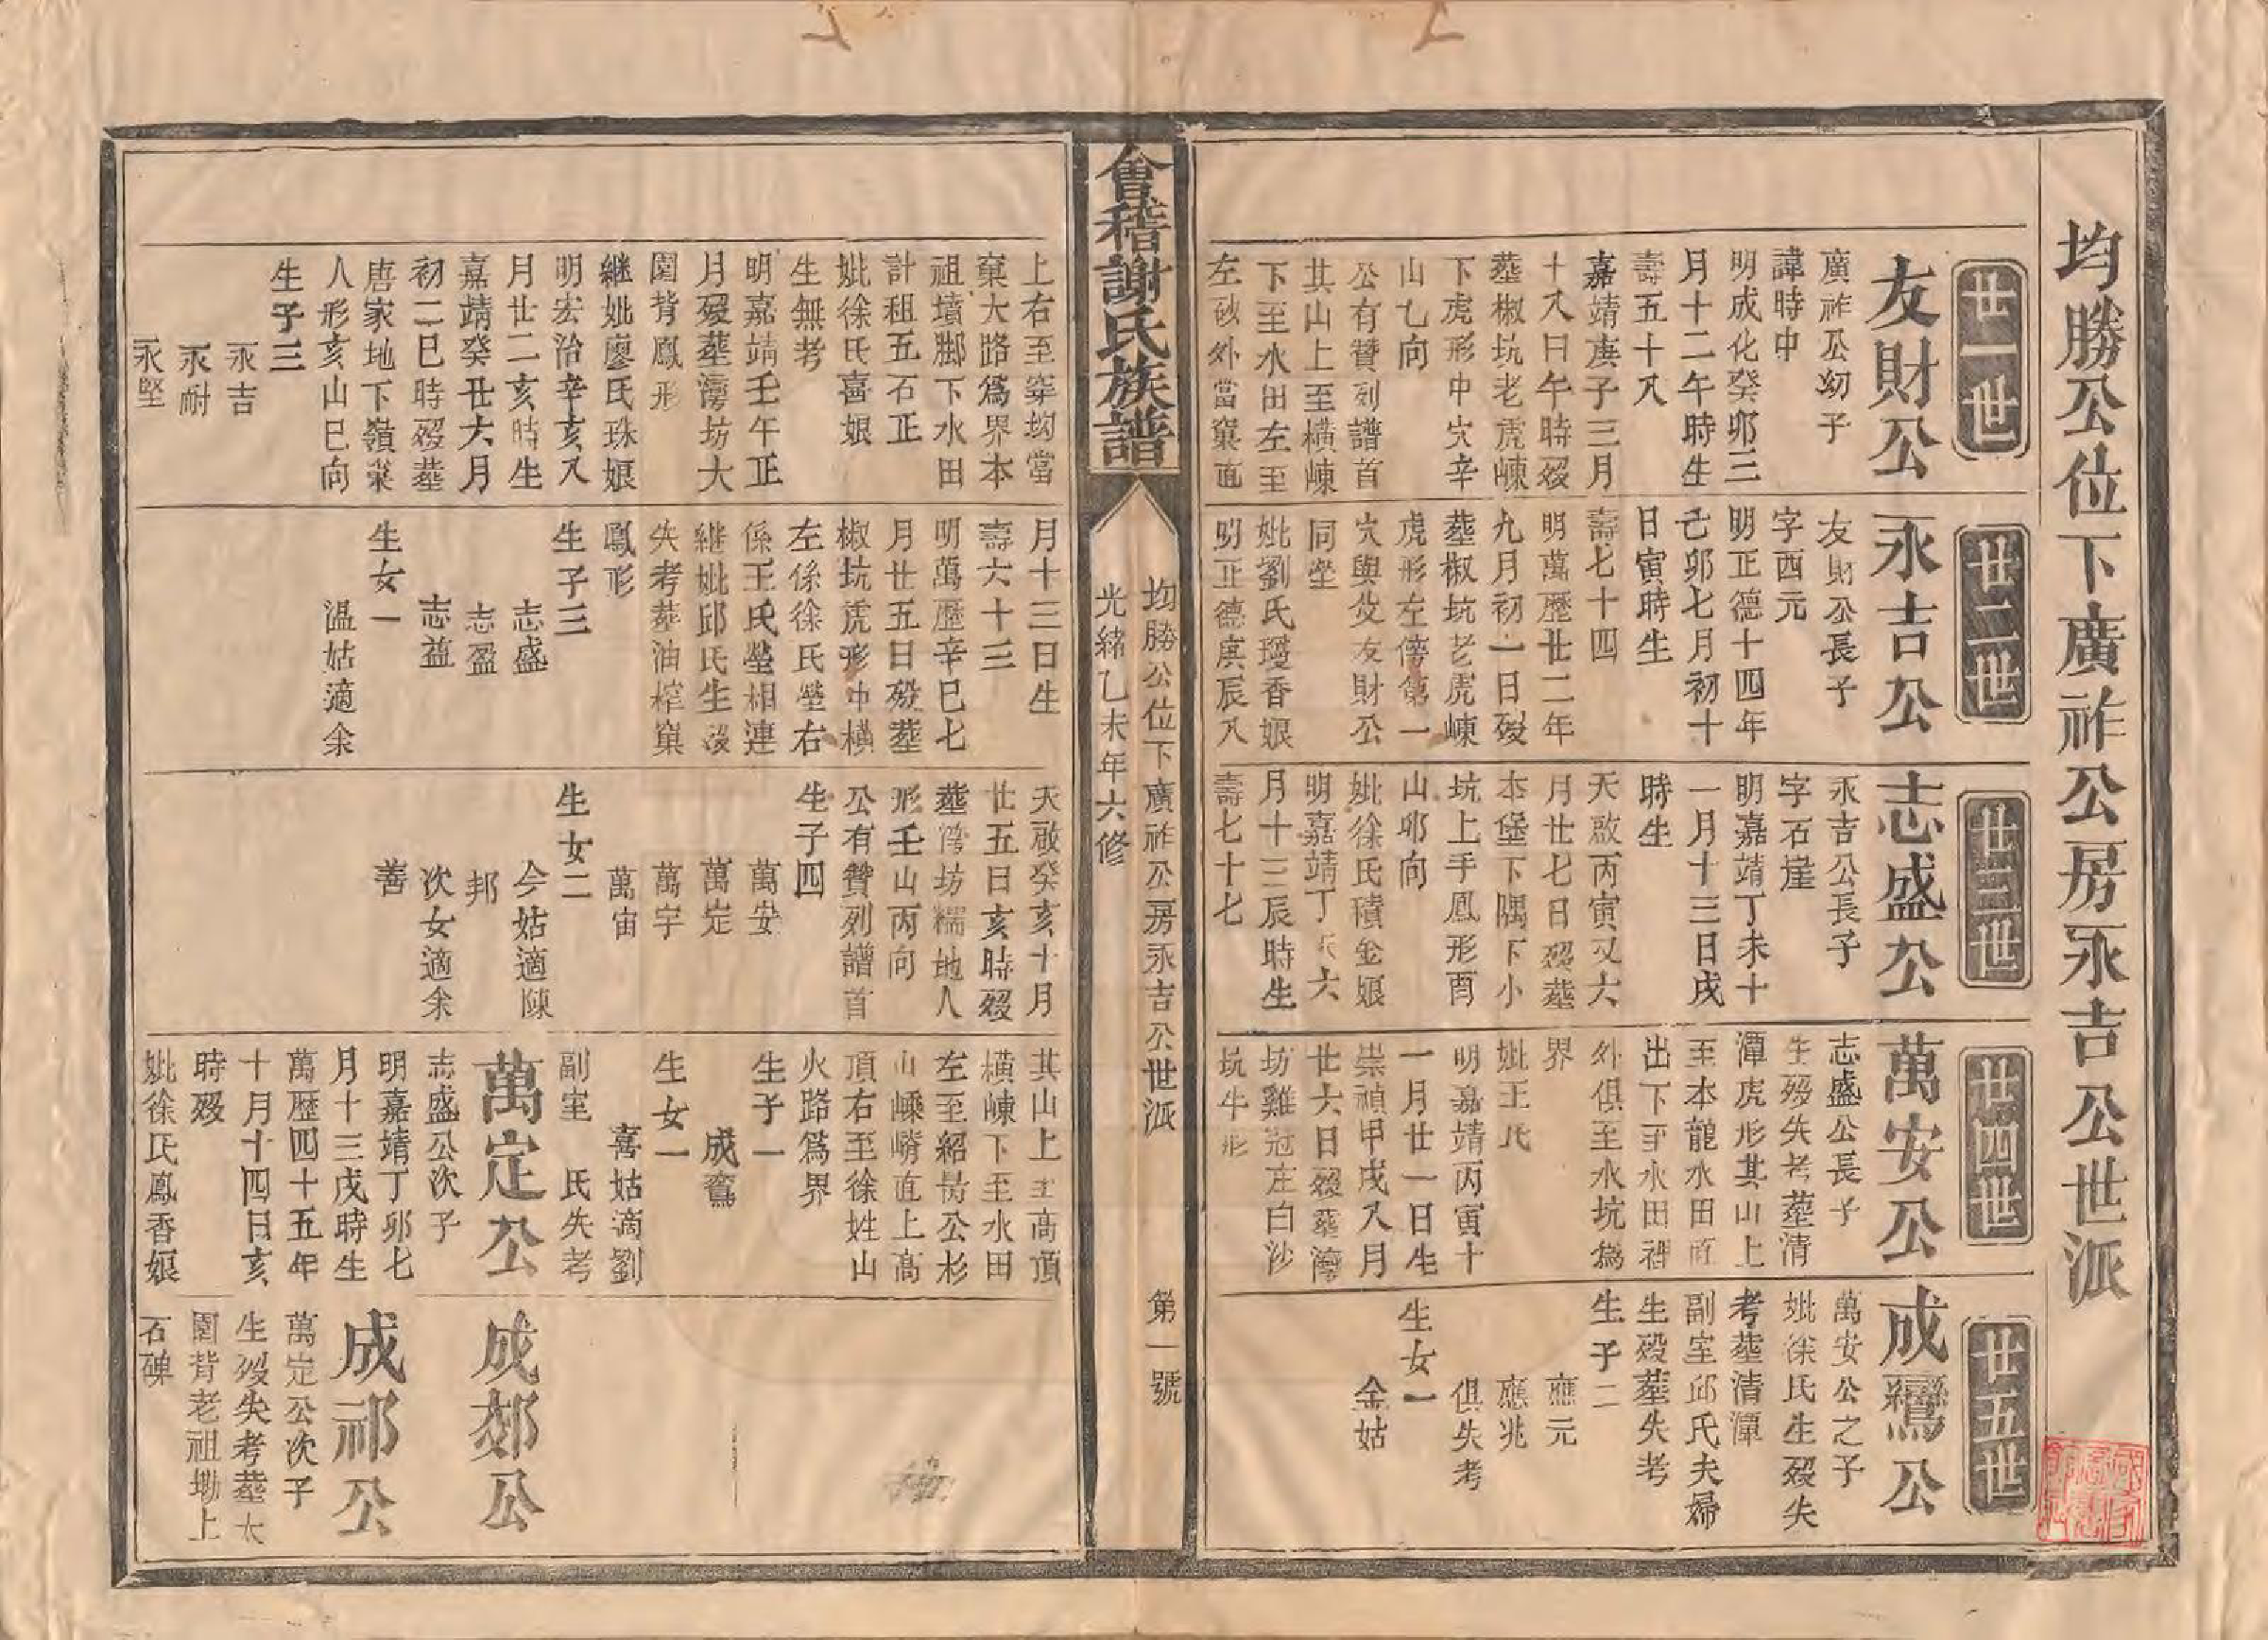 均勝公位下廣祚公房永吉公世派
廿一世
友財公
廣祚公㓜子
諱時中
明成化癸卯三
月十二午時生
壽五十八
嘉靖庚子三月
十八日午時殁
塟椒坑老虎崠
下虎形中穴辛
山乙向
公有贊列譜首
其山上至橫崠
下至水田左至
左砂外當窠直
廿二世
永吉公
友財公長子
字西元
明正德十四年
己卯七月初十
日寅時生
壽七十四
明萬歷廿二年
九月初一日殁
塟椒坑老虎崠
虎形左傍第一
穴與父友財公
同塋
妣劉氏瓊香娘
明正德庚辰八
廿三世
志盛公
永吉公長子
字石崖
明嘉靖丁未十
一月十三日戌
時生
天啟丙寅又六
月廿七日殁塟
本堡下隅下小
坑上手鳳形酉
山卯向
妣徐氏積金娘
明嘉靖丁六
月十三辰時生
壽七十七
廿四世
萬安公
志盛公長子
生殁失考塟清
潭虎形其山上
至本龍水田直
出下至水田裡
外俱至水坑為
界
妣王氏
明嘉靖丙寅十
一月廿一日生
崇禎甲戌八月
廿六日殁塟灣
坊雞冠庄白沙
坑牛形
廿五世
成鸞公
萬安公之子
妣徐氏生殁失
考塟清潭
副室邱氏夫婦
生殁塟失考
生子二
應元
應兆
俱失考
生女一
金姑
會稽謝氏族譜
均勝公位下廣祚公房永吉公世派 第一號
光緒乙未年六修
上右至窠坳當
窠大路為界本
祖墳腳下水田
計租五石正
妣徐氏喜娘
生無考
明嘉靖壬午正
月殁塟灣坊大
園背鳳形
繼妣廖氏珠娘
明宏治辛亥八
月廿二亥時生
嘉靖癸丑六月
初二巳時殁塟
唐家地下嶺窠
人形亥山巳向
生子三
永吉
永耐
永堅
月十三日生
壽六十三
明萬歷辛巳七
月廿五日殁塟
椒坑虎形中橫
左係徐氏塋右
係王氏塋相連
繼妣邱氏生殁
失考塟油榨窠
鳳形
生子三
志盛
志盈
志益
生女一
溫姑適余
天啟癸亥十月
廿五日亥時殁
塟灣坊糯地人
形壬山丙向
公有贊列譜首
生子四
萬安
萬定
萬宇
萬宙
生女二
今姑適陳
邦
次女適余
善
其山上至高頂
橫崠下至水田
左至紹長公杉
山嵊嵴直上高
頂右至徐姓山
火路為界
生子一
成鸞
生女一
喜姑適劉
副室 氏失考
萬定公
志盛公次子
明嘉靖丁卯七
月十三戌時生
萬歷四十五年
十月十四日亥
時殁
妣徐氏鳳香娘
成郊公
成祁公
萬定公次子
生殁失考塟大
園背老祖㘭上
石碑